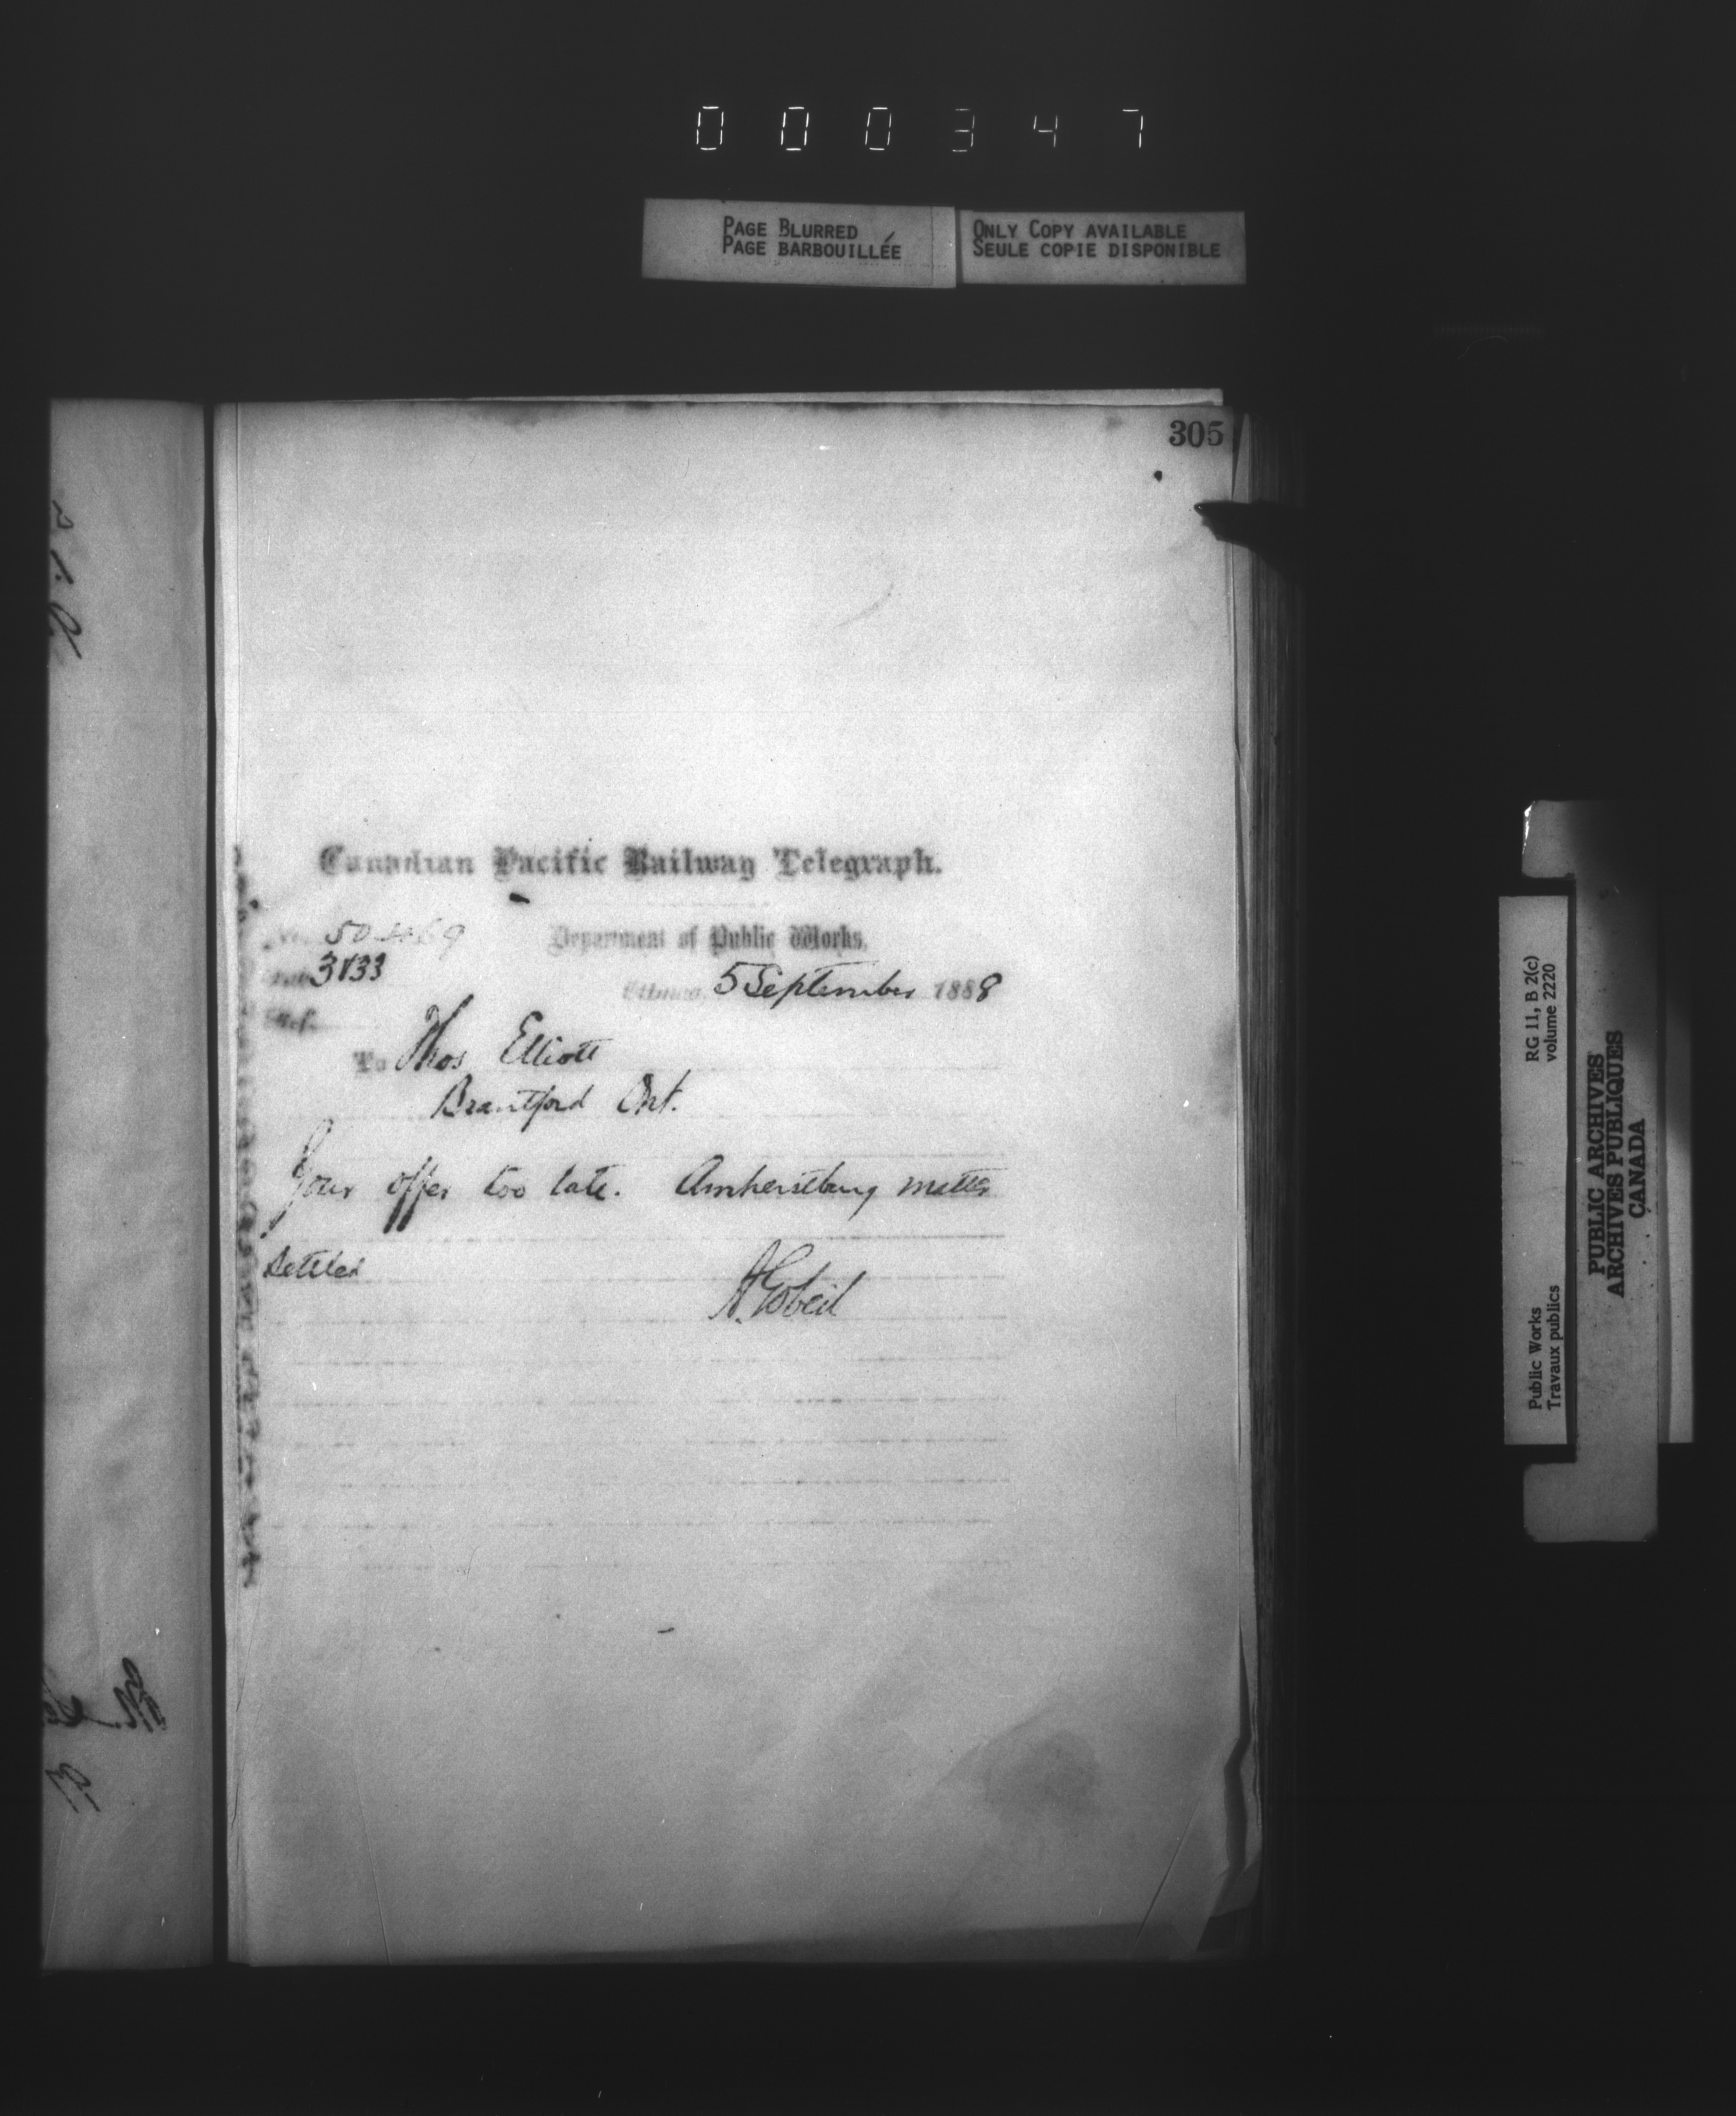 000347
PAGE BLURRED
PAGE BARBOUILLÉE
ONLY COPY AVAILABLE
SEULE COPIE DISPONIBLE
305
Canadian Pacific Railway Telegraph.
No.
Department of Public Works,
Ottawa, 5 September 1888
Ref.
To Thos Elliott
Brantford Ont.
Your offer too late. Amherstburg matter
settled
A. Gobeil
RG 11, B 2(c)
volume 2220
Public Works
Travaux publics
PUBLIC ARCHIVES
ARCHIVES PUBLIQUES
CANADA